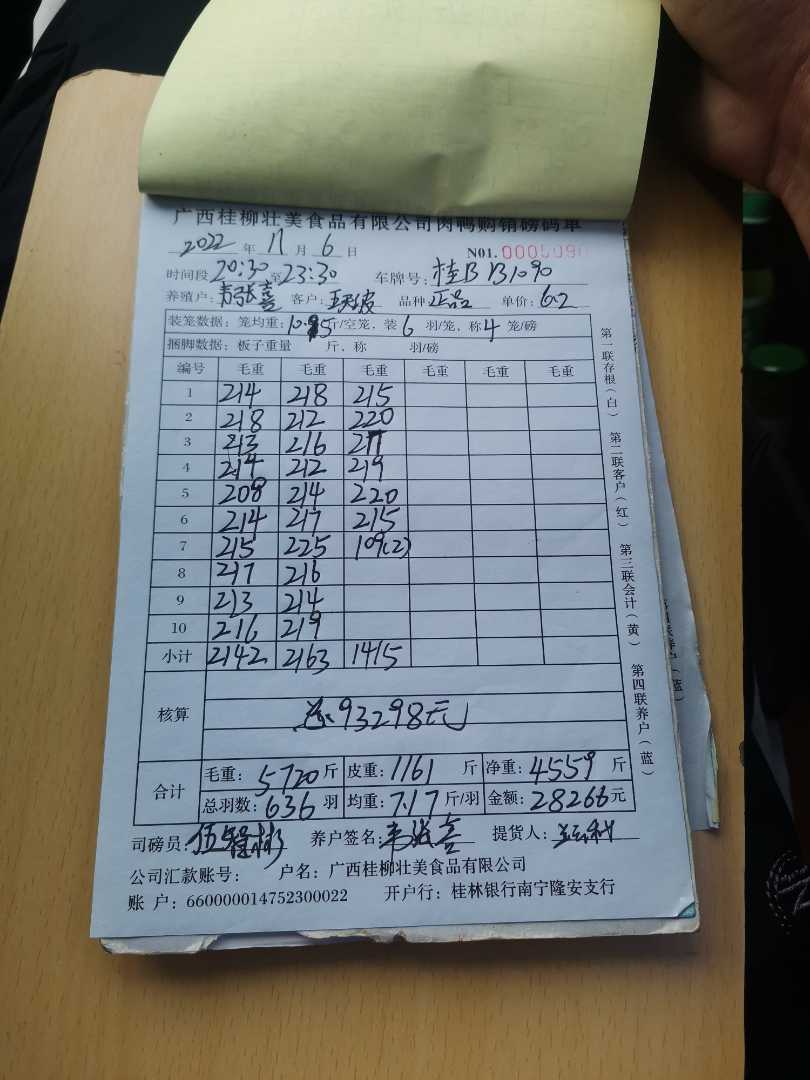 广西桂柳壮美食品有限公司肉鸭购销磅码单
2022年11月6日 N01.
时间段20:30至23:30 车牌号：桂B B1090
养殖户： 客户： 品种正品 单价：6.2
装笼数据：笼均重： 斤/空笼，装6羽/笼，称4笼/磅
捆脚数据：板子重量 斤，称 羽/磅
编号 毛重 毛重 毛重 毛重 毛重 毛重
1 214 218 215
2 218 212 220
3 213 216 217
4 214 212 219
5 208 214 220
6 214 217 215
7 215 225 109(2)
8 217 216
9 213 214
10 216 219
小计 2142 2163 1415
核算 总：93298元
合计 毛重：5720斤 皮重：1161斤 净重：4559斤
总羽数：636羽 均重：7.17斤/羽 金额：28266元
司磅员： 养户签名： 提货人：
公司汇款账号： 户名：广西桂柳壮美食品有限公司
账 户：660000014752300022 开户行：桂林银行南宁隆安支行
第一联存根（白） 第二联客户（红） 第三联会计（黄） 第四联养户（蓝）